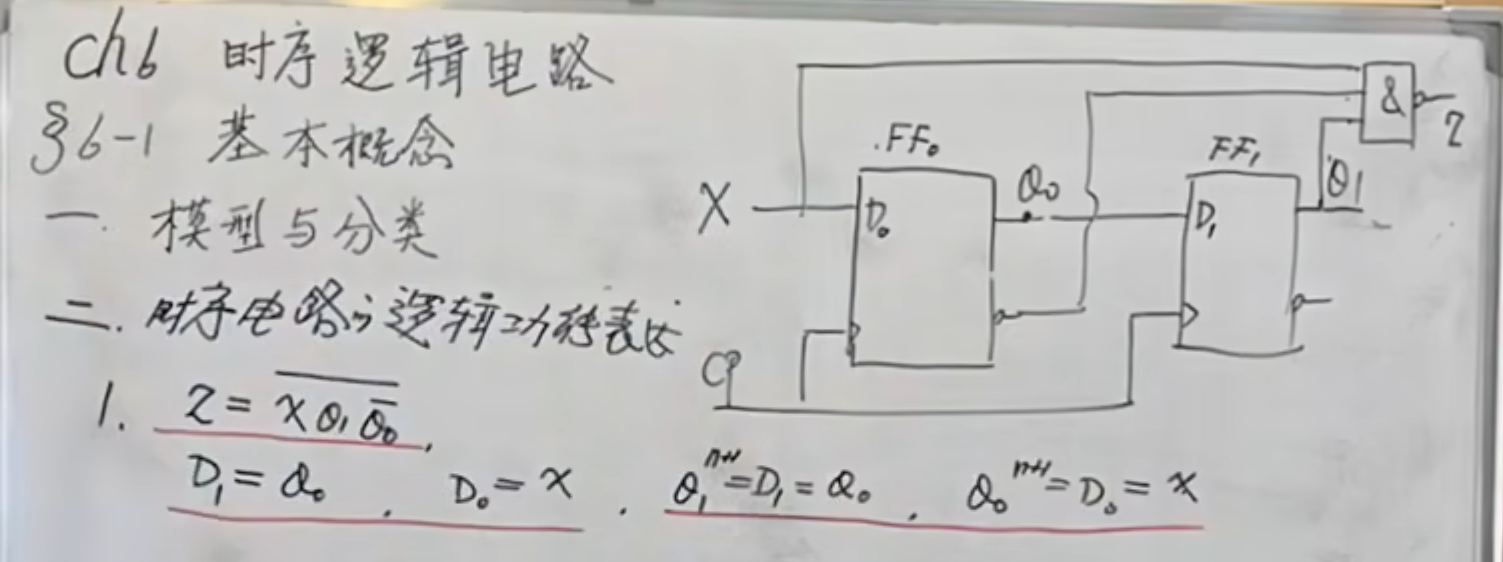 ch6 时序逻辑电路
§6-1 基本概念
一. 模型与分类
二. 时序电路的逻辑功能表达
1. Z = \overline{X Q₁ \overline{Q₀}},
D₁ = Q₀, D₀ = X. Q₁ⁿ⁺¹ = D₁ = Q₀, Q₀ⁿ⁺¹ = D₀ = X
&
Z
FF₀
FF₁
X
D₀
Q₀
D₁
Q₁
CP